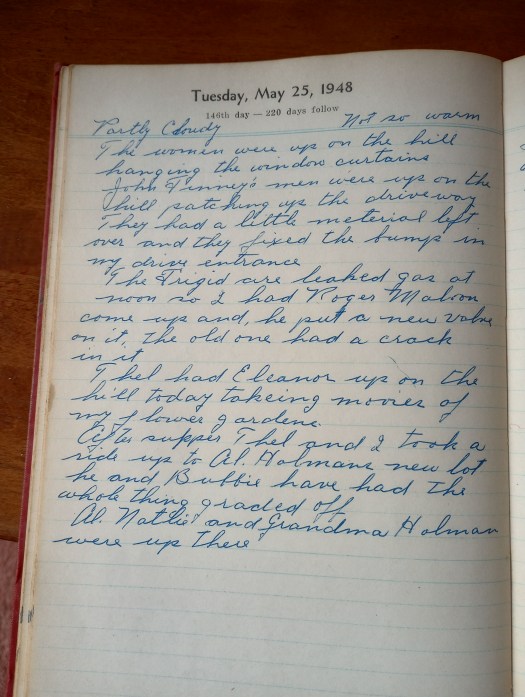 Tuesday, May 25, 1948
146th day — 220 days follow
Partly Cloudy Not so warm
The women were up on the hill
hanging the window curtains
John Finney's men were up on the
hill patching up the driveway
They had a little meterial left
over and they fixed the bump in
my drive entrance
The Frigid aire leaked gas at
noon so I had Roger Malvon
come up and, he put a new valve
on it, the old one had a crack
in it
Thel had Eleanor up on the
hill today takeing movies of
my flower gardens.
After supper Thel and I took a
ride up to Al. Holmans new lot
he and Bubbie have had the
whole thing graded off
Al. Nattie and Grandma Holman
were up there